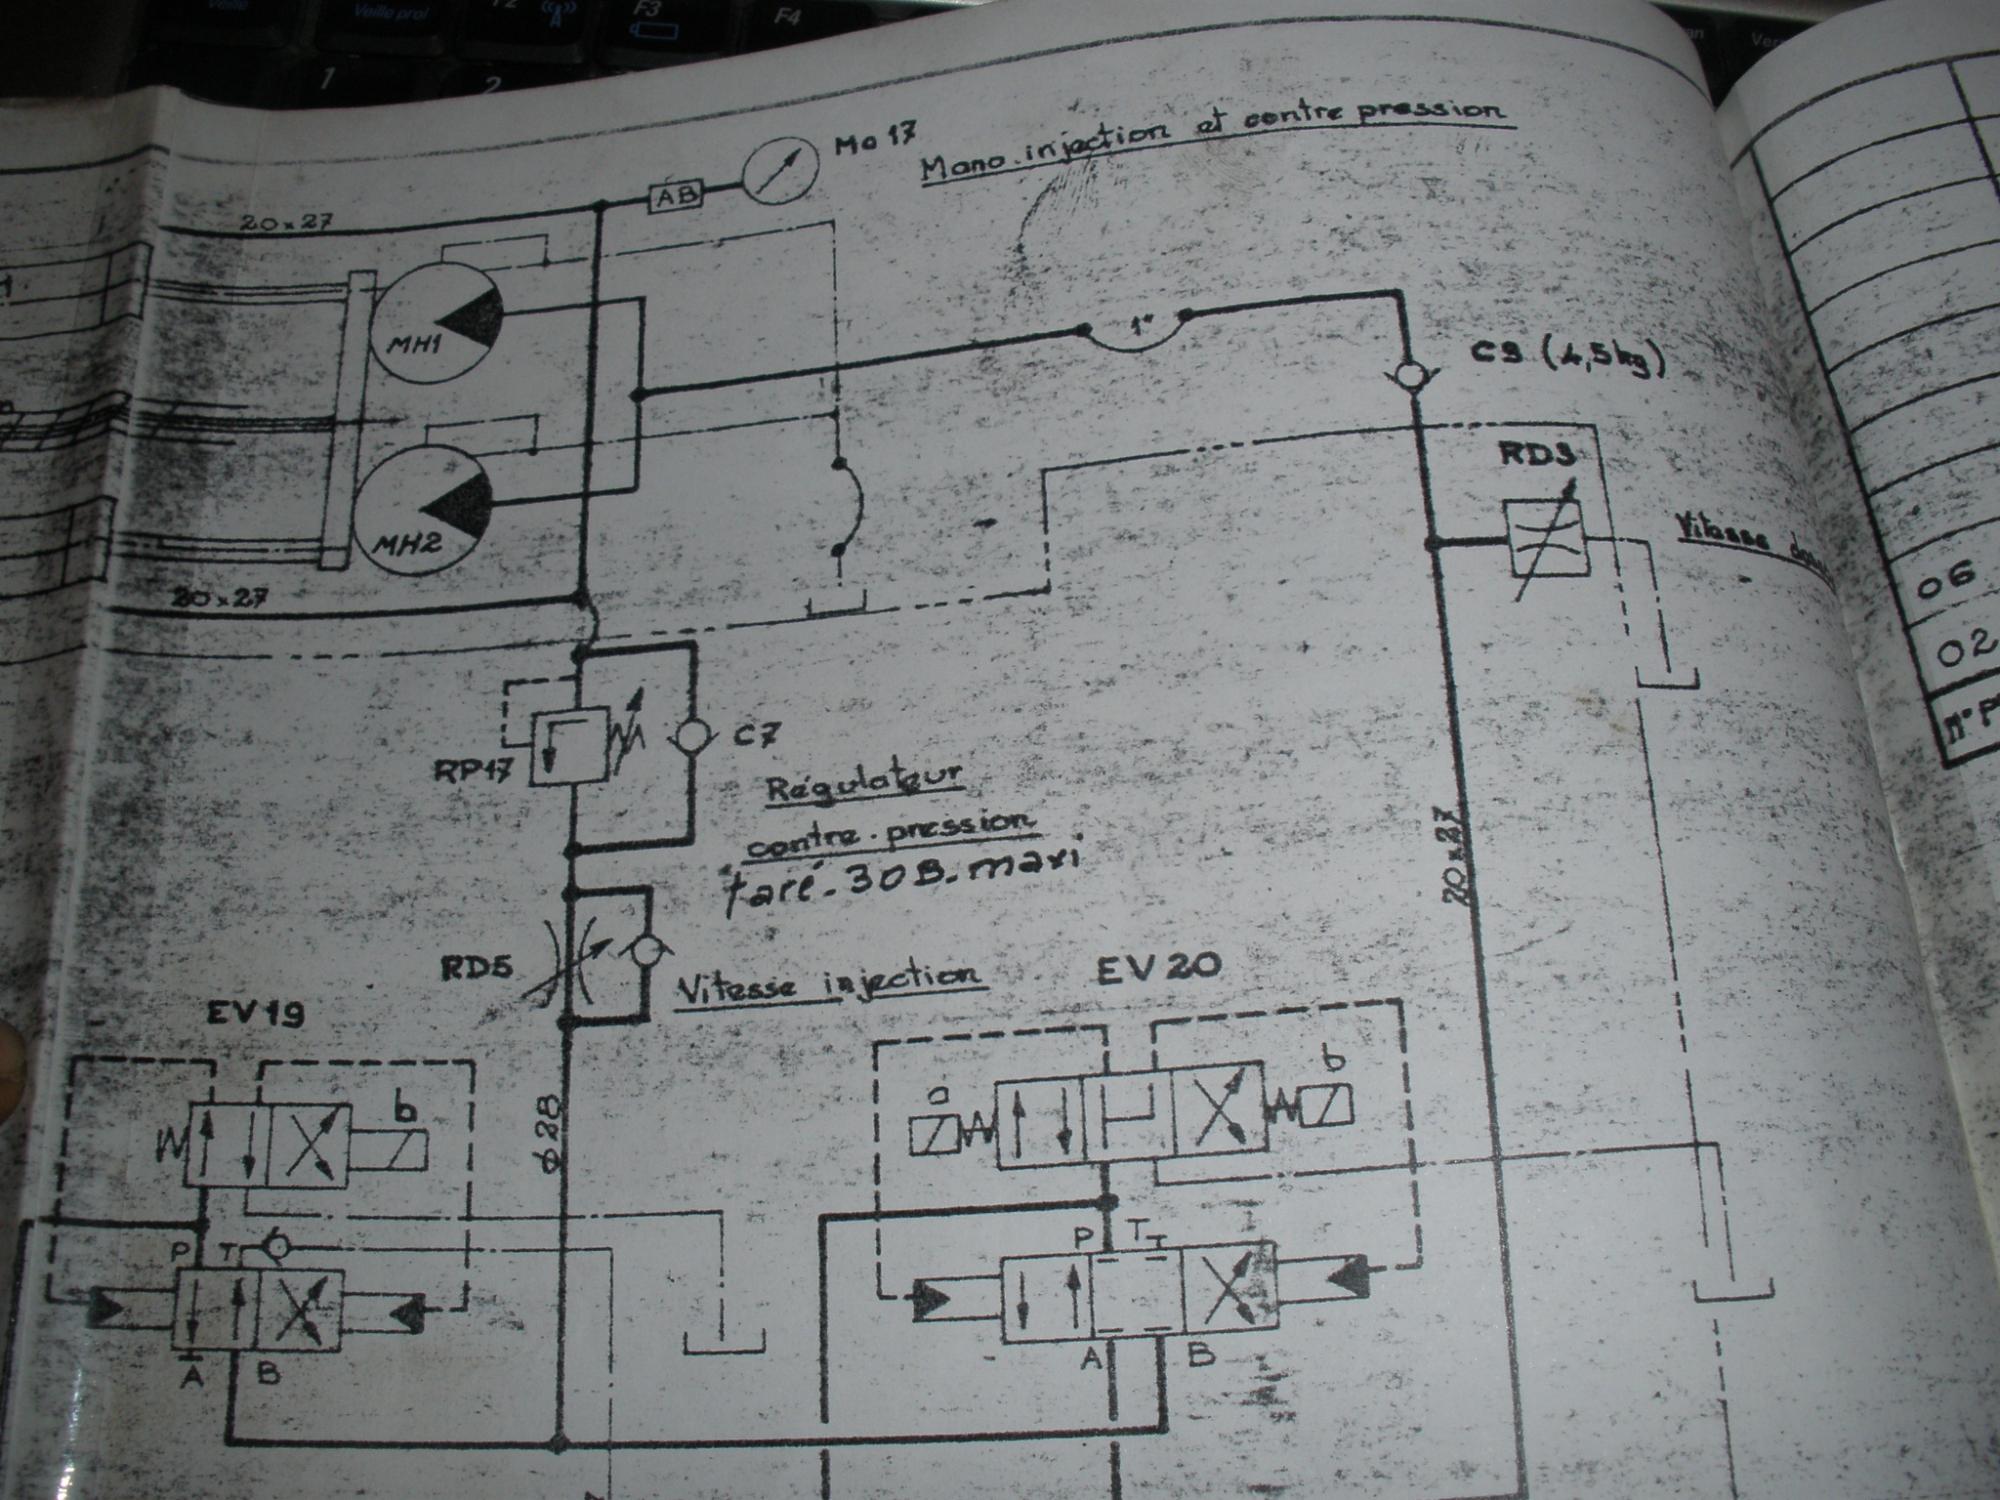 Veille
Veille prol
F2
F3
F4
1
2
Mo 17
Mano. injection et contre pression
AB
20x27
MH1
1"
C9 (4,5kg)
RD3
MH2
Vitesse
20x27
06
02
RP17
C7
Régulateur
contre.pression
taré.30B.maxi
20x27
RD5
Vitesse injection
EV20
EV19
b
b
a
φ28
P
T
P
T
A
B
A
B